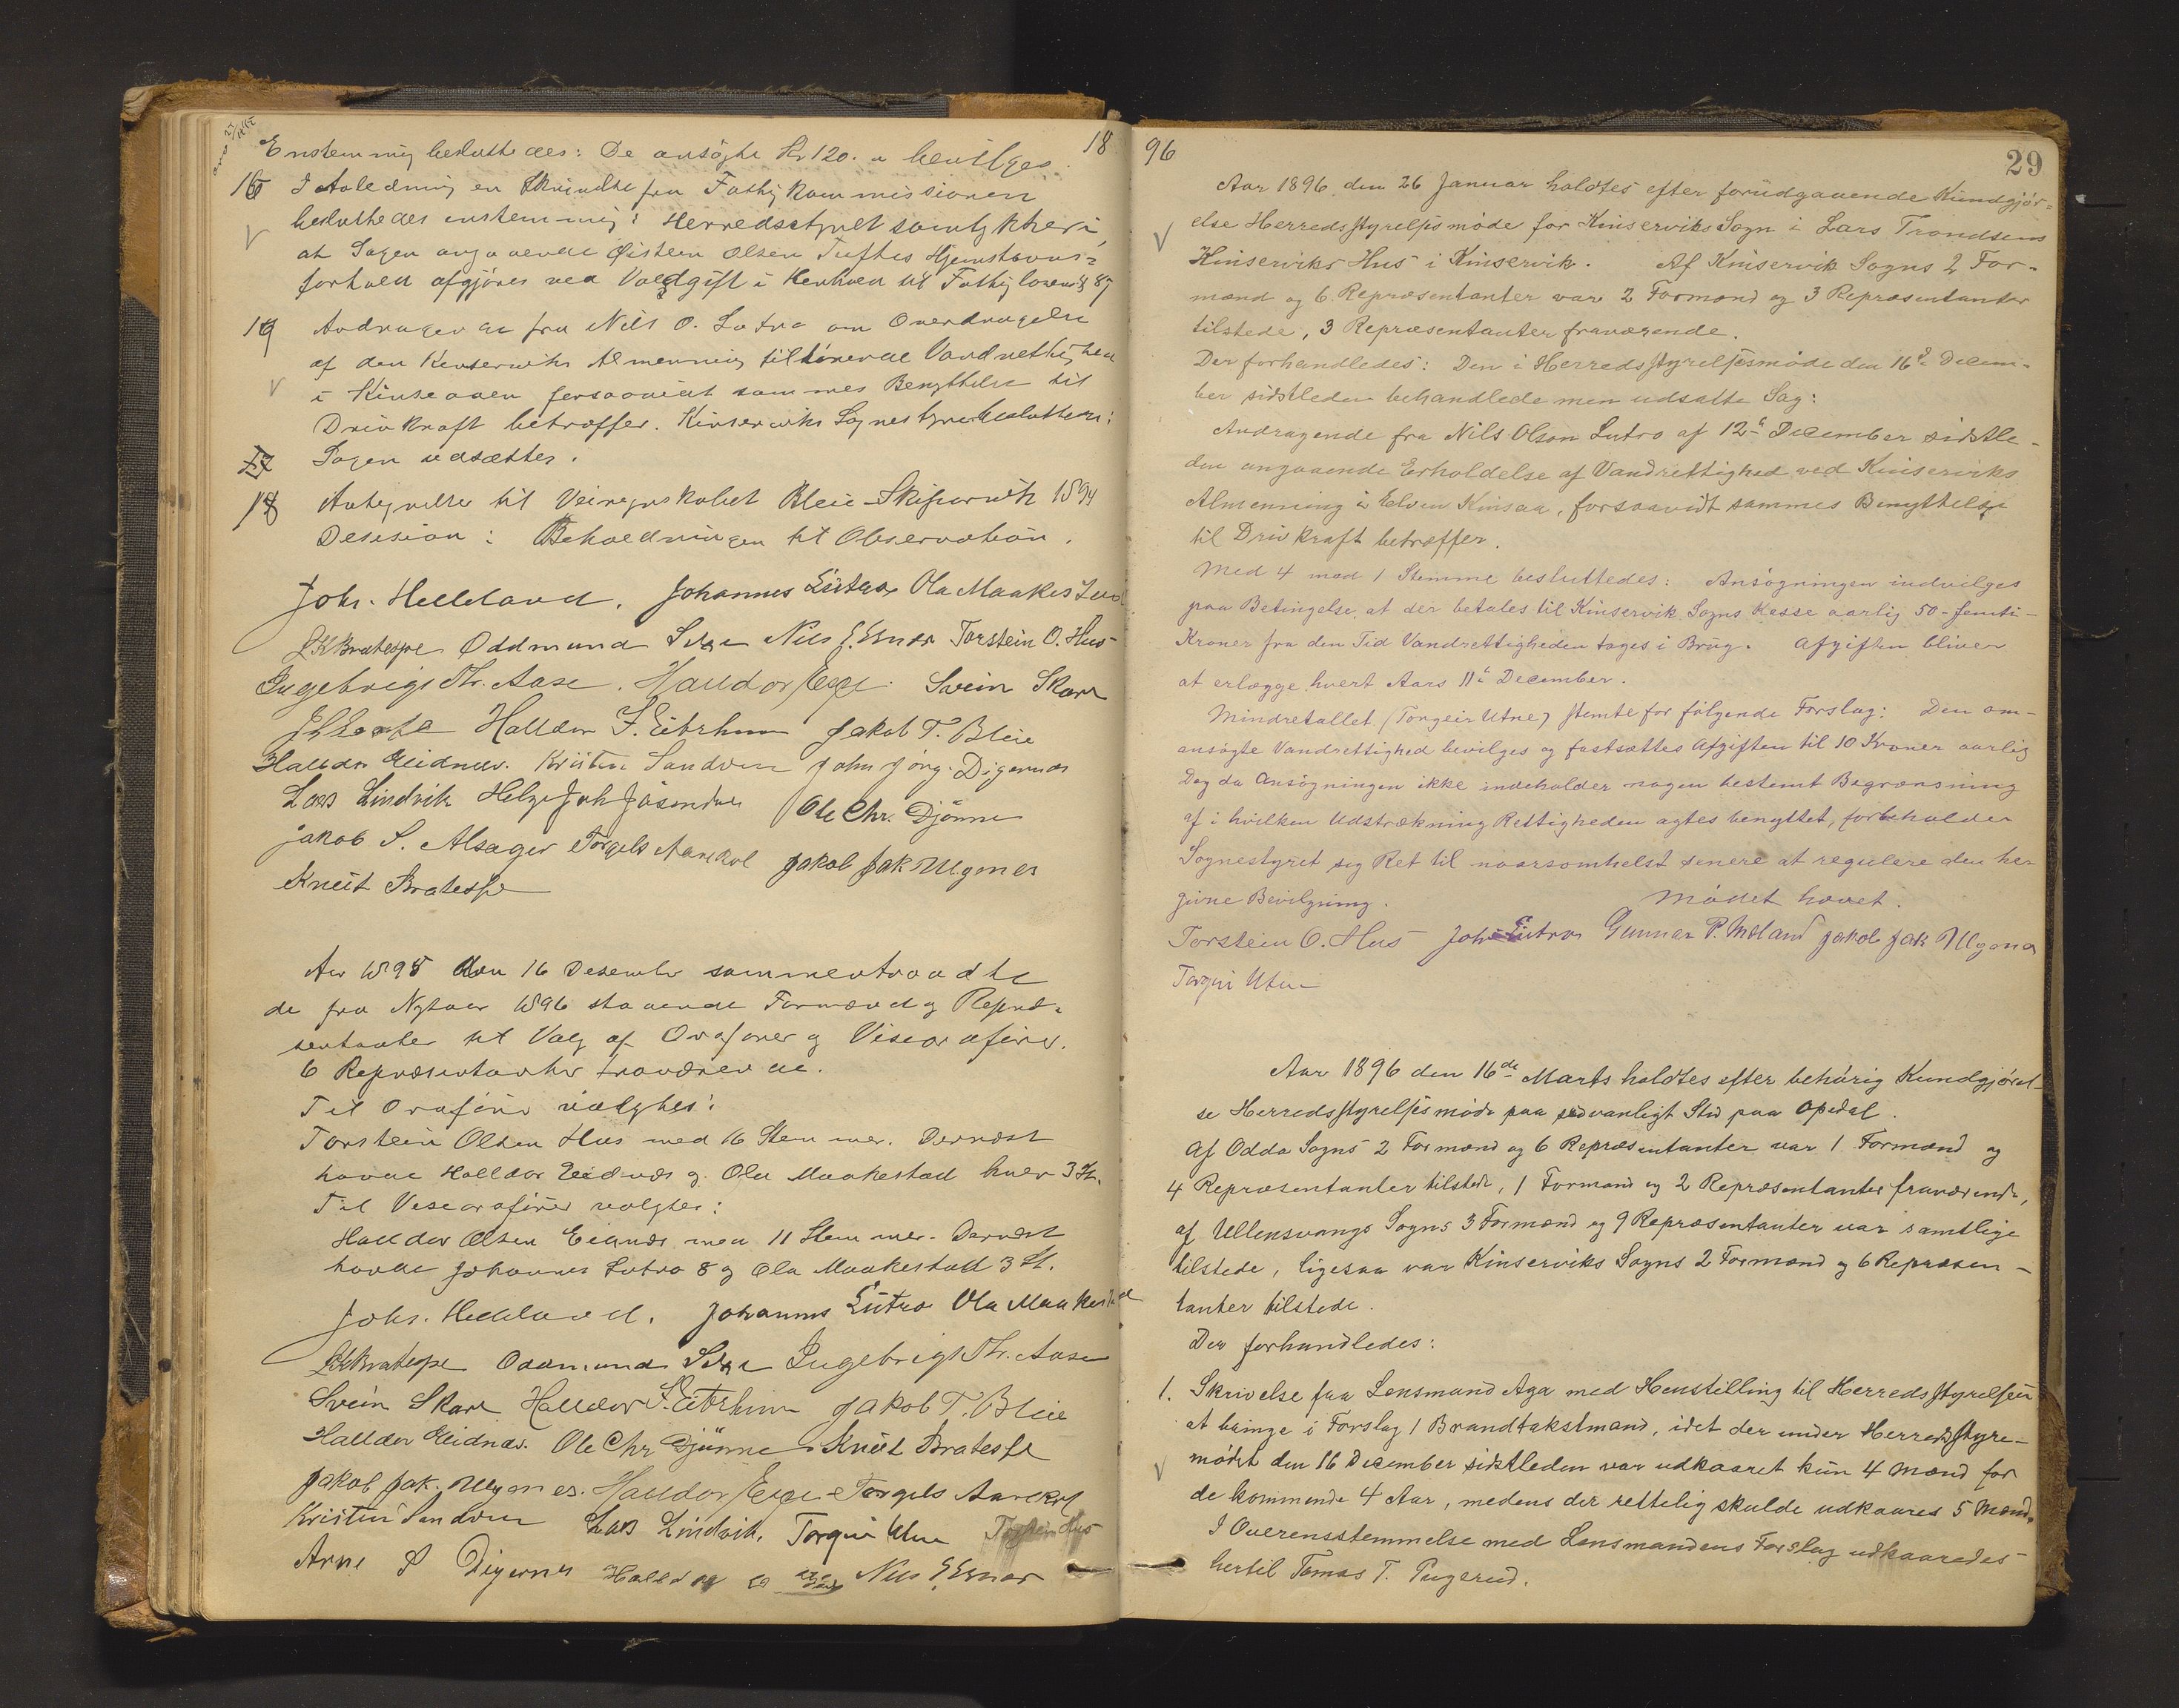 18
Enstemmig besluttedes: De ansøgte Kr 120.- bevilges.
16 I Anledning en Skrivelse fra Fattigkommissionen
besluttedes enstemmig: Herredsstyret samtykker i,
at Sagen angaaende Øistein Olsen Tuftes Hjemstavns-
forhold afgjøres ved Voldgift i Henhold til Fattiglovens § 87
Andragende fra Nils O. Lutro om Overdragelse
af den Kinserviks Almenning tilhørende Vandrettighed
i Kinsoaaen forsaavidt sammes Benyttelse til
Drivkraft betræffer. Kinserviks Sognestyre besluttede:
Sagen udsættes.
18 Antegnelser til Veiregnskabet Bleie-Skiparvik 1894
Desesion: Beholdningen til Observation.
Johs. Helleland. Johannes Lutro Ola Maakestad
Oddmund Nils E. Esnar Torstein O. Hus
Ingebrigt Th. Aase. Halldor Svein Skare
Halldor J. Eitrheim Jakob T. Bleie
Halldor Eidnes. Kristen Sandven John Jørg. Digernes
Lars Lindvik Helge Joh Jaasendal Ole Chr. Djønne
Jakob S. Alsager Torgels Aarekol Jakob Jak Ulgenes
Knut Bratespe
Aar 1895 den 16 Desember sammentraadte
de fra Nytaar 1896 staaende Formænd og Repræ-
sentanter til Valg af Ordfører og Viseordfører.
6 Repræsentanter fraværende.
Til Ordfører valgtes:
Torstein Olsen Hus med 16 Stemmer. Dernæst
havde Halldor Eidnæs og Ola Maakestad hver 3 St.
Til Viseordfører valgtes:
Halldor Olsen Eidnæs med 11 Stemmer. Dernæst
havde Johannes Lutro 8 og Ola Maakestad 3 St.
Johs. Helleland. Johannes Lutro Ola Maakestad
Oddmund Ingebrigt Th. Aase
Svein Skare Halldor J. Eitrheim Jakob T. Bleie
Halldor Eidnes. Ole Chr Djønne Knut Bratespe
Jakob Jak. Ulgenes. Halldor Torgels Aarekol
Kristen Sandven Lars Lindvik. Torgeir Utne Torstein Hus
Arne Digernes Halldor Nils E. Esnar
96
29
Aar 1896 den 26 Januar holdtes efter forudgaaende Kundgjør-
else Herredsstyrelsesmøde for Kinserviks Sogn i Lars Trondsens
Kinserviks Hus i Kinservik. Af Kinservik Sogns 2 For-
mænd og 6 Repræsentanter var 2 Formænd og 3 Repræsentanter
tilstede, 3 Repræsentanter fraværende.
Der forhandledes: Den i Herredsstyrelsesmøde den 16de Decem-
ber sidstleden behandlede men udsatte Sag:
Andragende fra Nils Olson Lutro af 12te December sidstle-
den angaaende Erholdelse af Vandrettighed ved Kinserviks
Almenning i Elven Kinsaa, forsaavidt sammes Benyttelse
til Drivkraft betræffer.
Med 4 mod 1 Stemme besluttedes: Ansøgningen indvilges
paa Betingelse at der betales til Kinservik Sogns Kasse aarlig 50-femti-
Kroner fra den Tid Vandrettigheden tages i Brug. Afgiften bliver
at erlægge hvert Aars 11te December.
Mindretallet (Torgeir Utne) stemte for følgende Forslag: Den om-
ansøgte Vandrettighed bevilges og fastsættes Afgiften til 10 Kroner aarlig
Dog da Ansøgningen ikke indeholder nogen bestemt Begrænsning
af i hvilken Udstrækning Rettigheden agtes benyttet, forbeholder
Sognestyret sig Ret til naarsomhelst senere at regulere den her
givne Bevilgning. Mødet hævet.
Torstein O. Hus Johs Lutro Gunnar P. Meland Jakob Jak Ulgenes
Torgeir Utne
Aar 1896 den 16de Marts holdtes efter behørig Kundgjørel-
se Herredsstyrelsesmøde paa sedvanligt Sted paa Opedal.
Af Odda Sogns 2 Formænd og 6 Repræsentanter var 1 Formand og
4 Repræsentanter tilstede, 1 Formand og 2 Repræsentanter fraværende,
af Ullensvangs Sogns 3 Formænd og 9 Repræsentanter var samtlige
tilstede, ligesaa var Kinserviks Sogns 2 Formænd og 6 Repræsen-
tanter tilstede.
Der forhandledes:
1. Skrivelse fra Lensmand Aga med Henstilling til Herredsstyrelsen
at bringe i Forslag 1 Brandtakstmand, idet der under Herredsstyre-
mødet den 16 December sidstleden var udkaaret kun 4 Mænd for
de kommende 4 Aar, medens der rettelig skulde udkaares 5 Mænd.
I Overensstemmelse med Lensmandens Forslag udkaaredes
hertil Tomas T.